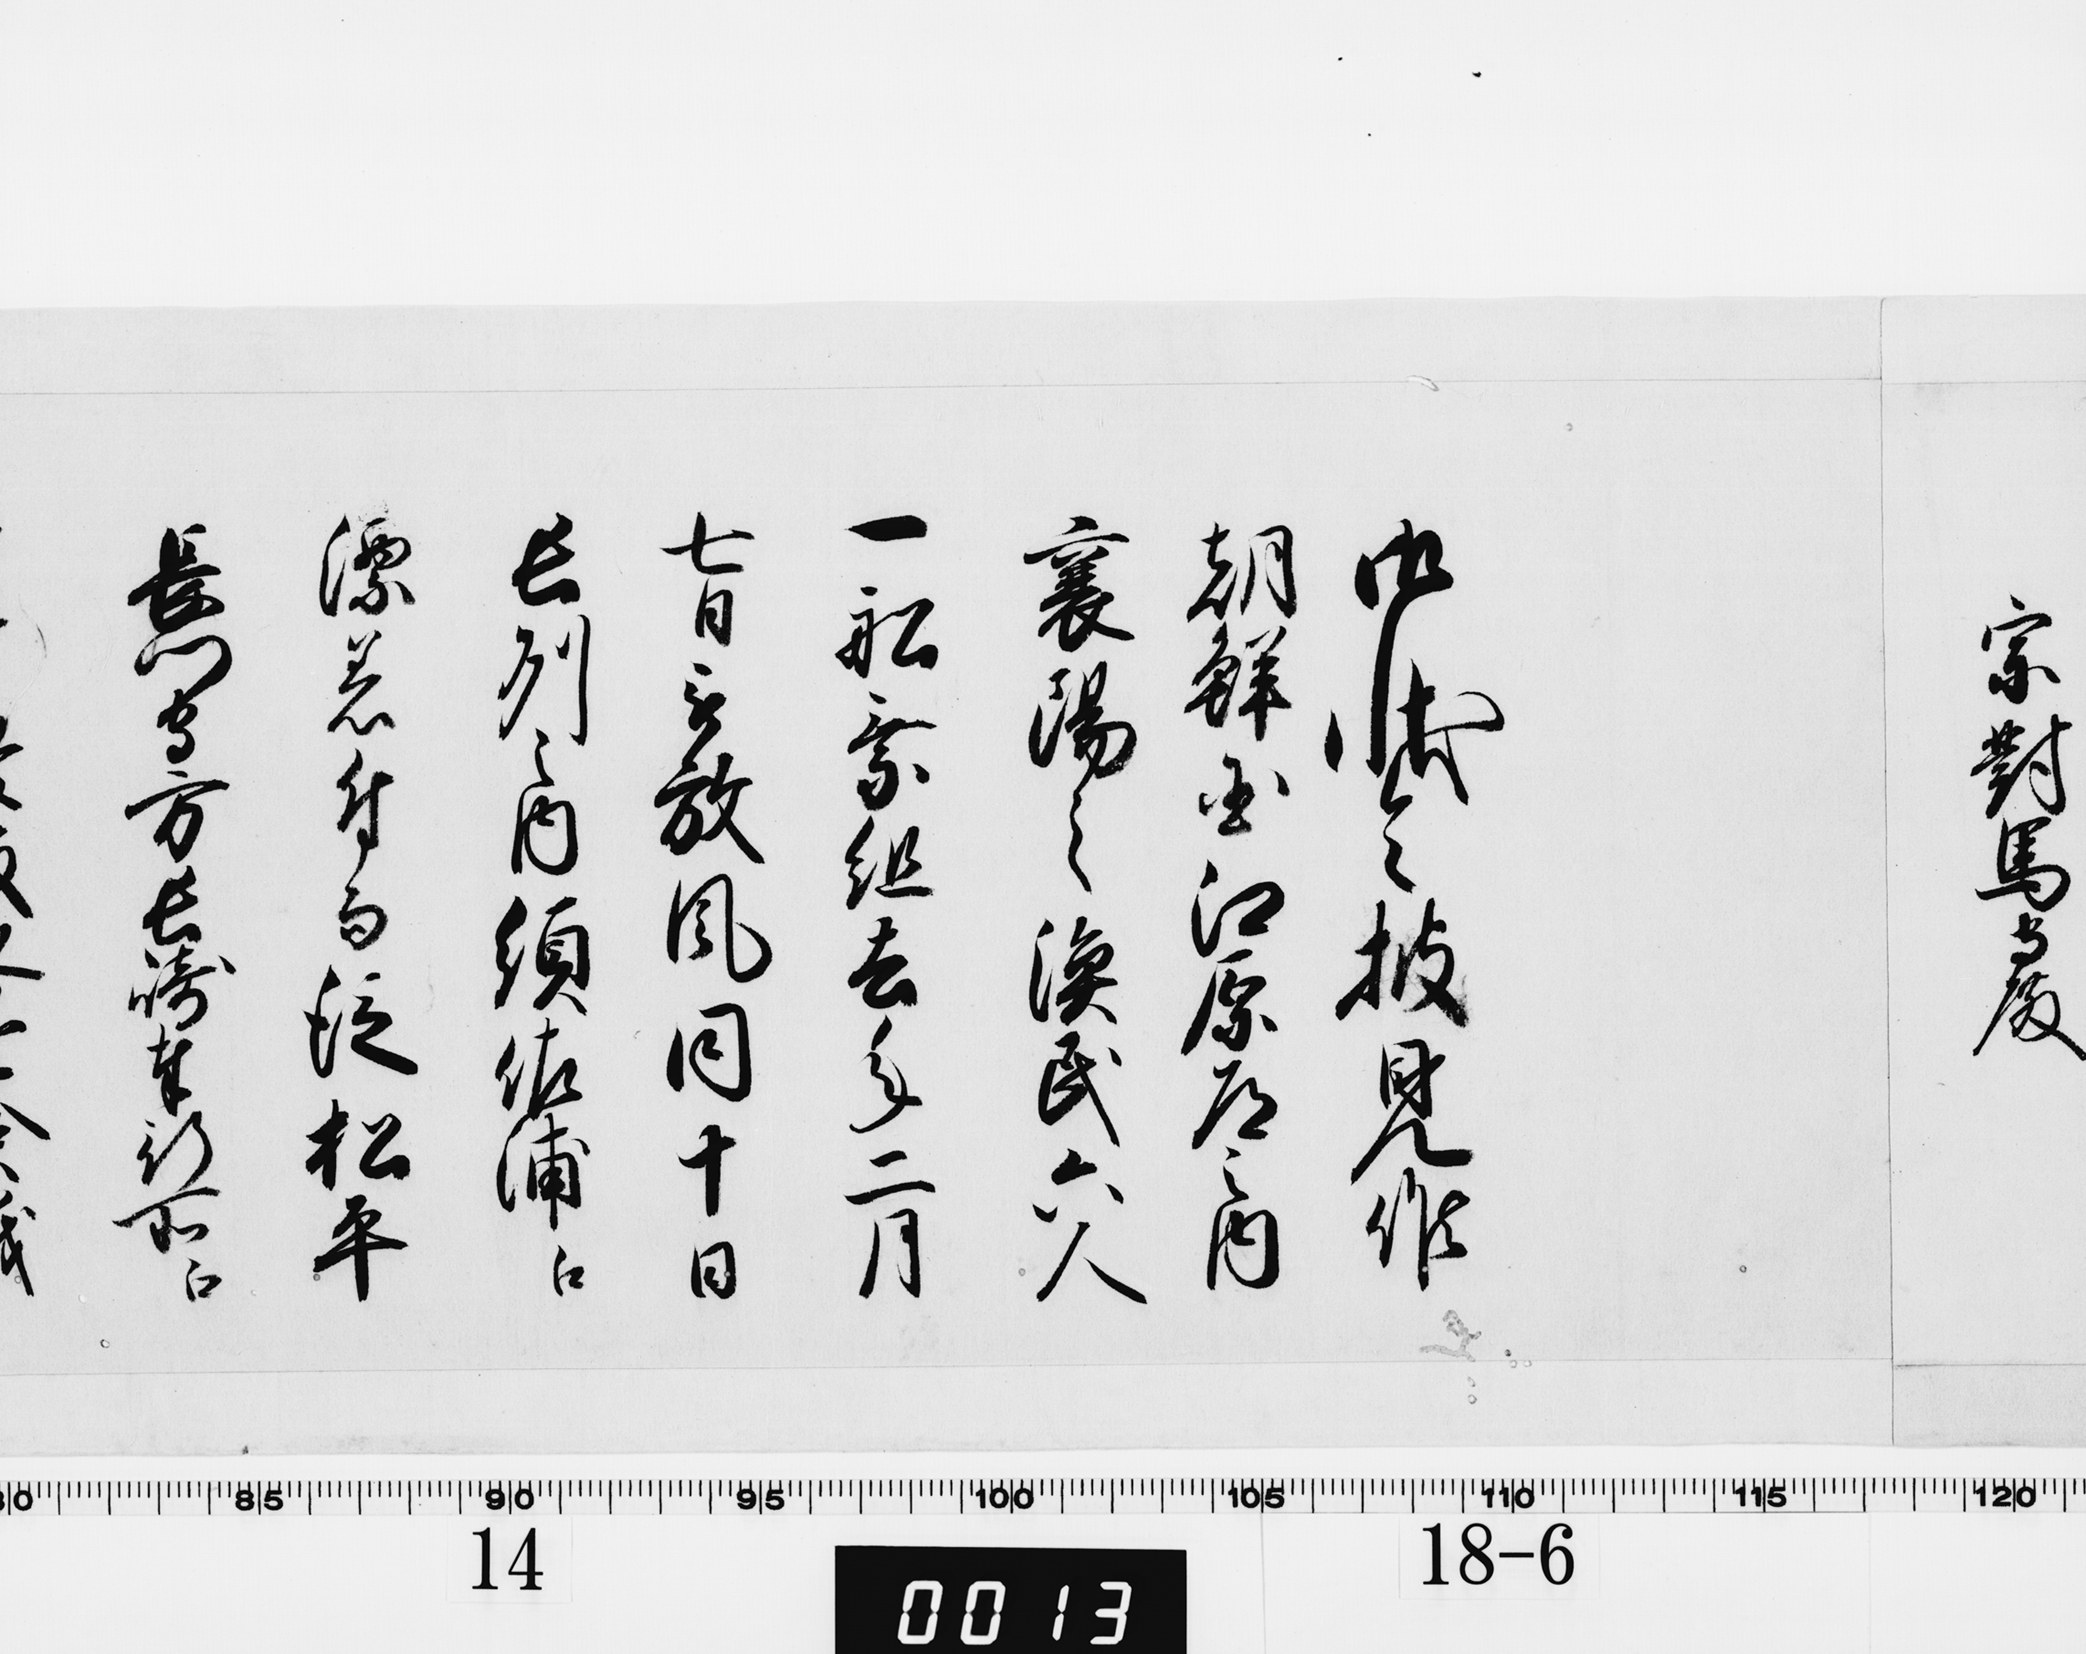 宗對馬守殿
御状令披見候
朝鮮国江原道之内
襄陽之漁民六人
一船乗組去年二月
七日之放風同十日
長列之内須佐浦江
漂着付而従松平
長門守方長崎奉行所江
80 85 90 95 100 105 110 115 120
14
18-6
0013